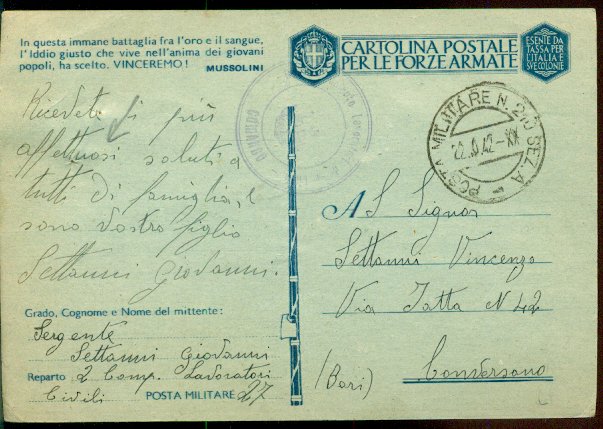 In questa immane battaglia fra l'oro e il sangue,
l'Iddio giusto che vive nell'anima dei giovani
popoli, ha scelto. VINCEREMO! MUSSOLINI
CARTOLINA POSTALE
PER LE FORZE ARMATE
ESENTE DA
TASSA PER
L'ITALIA E
SUE COLONIE
POSTA MILITARE N. 210 SEZ. A
42-XX
Ricevete i più
affettuosi saluti a
tutti di famiglia, e
sono Vostro figlio
Settanni Giovanni.
Grado, Cognome e Nome del mittente:
Sergente
Settanni Giovanni
Reparto 2 Comp. Lavoratori
Civili POSTA MILITARE 27
Al Signor
Settanni Vincenzo
Via Iatta N 42
(Bari) Conversano